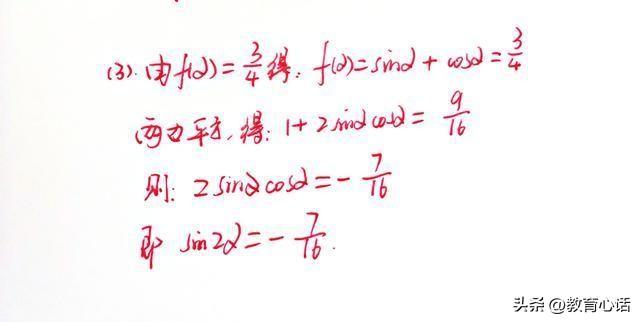 (3). 由f(α)=3/4得: f(α)=sinα+cosα=3/4
两边平方,得: 1+2sinαcosα=9/16
则: 2sinαcosα=-7/16
即 sin2α=-7/16.
头条 @教育心话